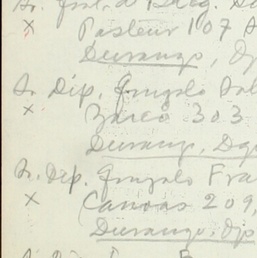 Pasteur 107 A
Durango, Dg
Sr. Dip. Gonzalo Sal
x
Zarco 303
Durango, Dgo
Sr. Dip. Gonzalo Fra
x Canoas 209,
Durango, Dgo